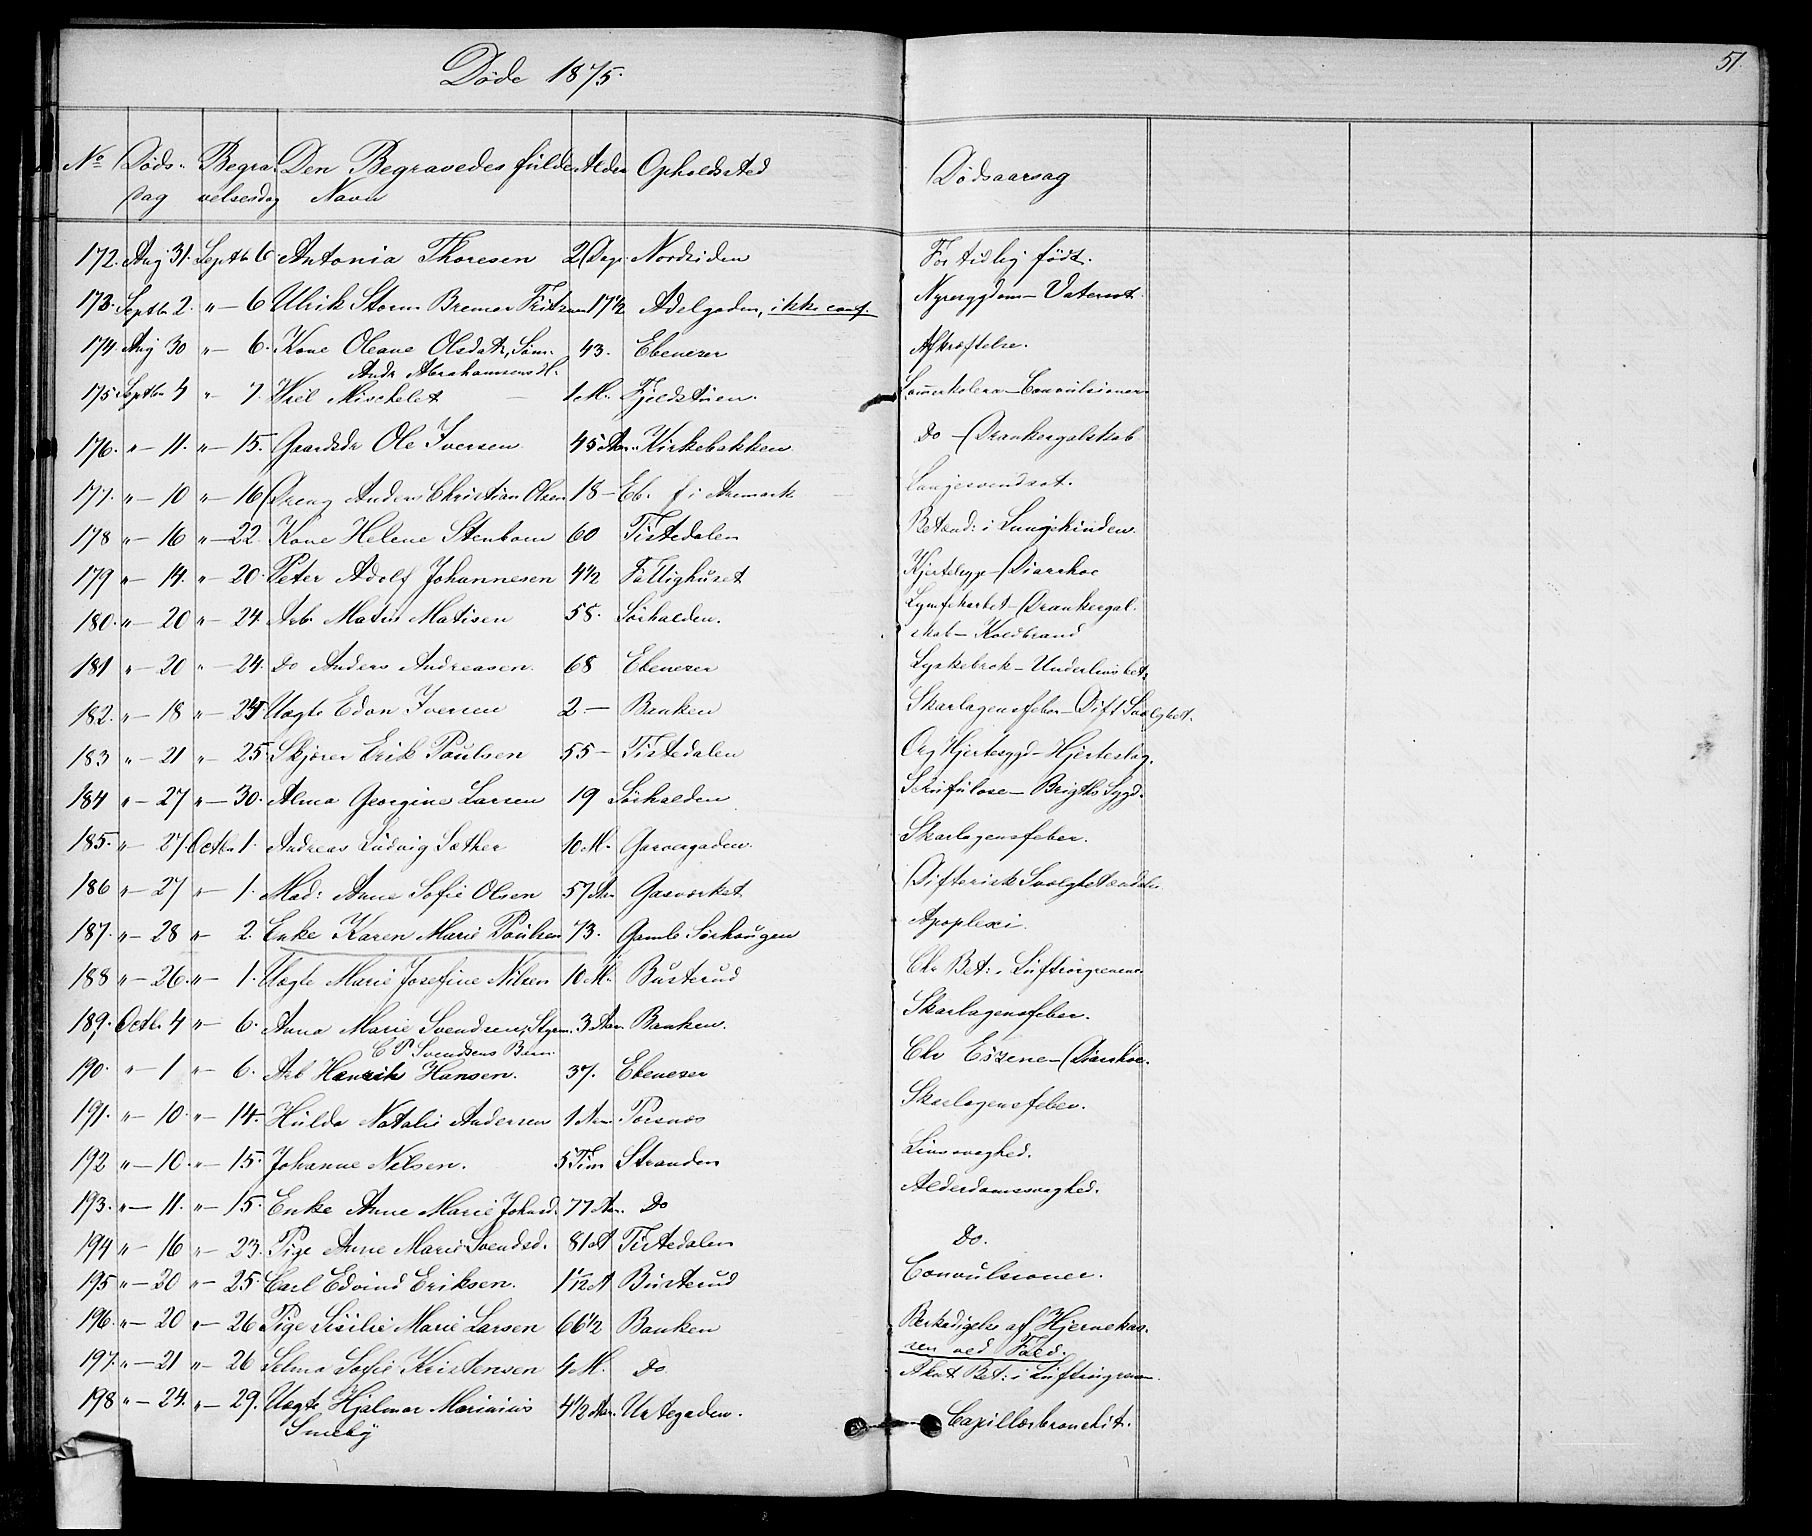 Døde 1875.
51.
No Døds- Begra- Den Begravedes fulde Alder Opholdsted Dødsaarsag
dag velsesdag Navn
172. Aug 31. Septb 6 Antonia Thoresen 2 Dage Nordsiden For tidlig født.
173. Septbr 2. " — 6 Ulrik Storm Bremer 17½ Adelgaden, ikke conf. Nyresygdom — Vatersot.
174 Aug 30 " — 6. Kone Oleane Olsdatr, Søm. 43. Ebenezer Afkræftelse.
Andr Abrahamsens H.
175 Septbr 4 " — 7. Wiel Mischelet — 1 M. Fjeldstuen. Somerkolera — Convulsioner
176. " — 11. " — 15. Gaardsdr Ole Iversen 45 Aar. Kirkebakken Do — Drankergalskab
177. " — 10 " — 16 Dreng Anders Christian Olsen 18 — Eb. f i Aremark Lungesvindsot.
178 " — 16 " — 22. Kone Helene Stenbom 60 Tistedalen Betænd: i Lungehinden.
179 " — 14. " — 20. Peter Adolf Johannesen 4½ Fattighuset Kjertelsyge — Diarrhoe
180. " — 20 " — 24. Arb. Matis Matisen 58. Sørhalden. — Drankergal-
skab — Koldbrand
181 " — 20 " — 24. Do Anders Andreasen. 68 Ebenezer Lyskebrok — Underlivsbet:
182. " — 18 " — 25 Uægte Edon Iversen 2 — Banken Skarlagensfeber — Dift Svælgbet.
183 " — 21 " — 25. Skjører Erik Paulsen 55 — Tistedalen Org Hjertesygd — Hjerteslag.
184 " — 27 " — 30. Alma Georgine Larsen 19 Sørhalden Skrufulose — Brigths Sygd.
185. " — 27. Octbr 1. Andreas Ludvig Sæther 10 M. Garvergaden. Skarlagensfeber.
186 " — 27 " — 1. Mad: Anne Sofie Olsen 57 Aar Gasværket Difterisk
187. " — 28 " — 2. Enke Karen Marie Paulsen 73. Gamle Sørhaugen Apoplexi.
188 " — 26. " — 1. Uægte Marie Josefine Nilsen 10 M. Busterud Chr Bet: i Luftrørgrenene
189. Octb. 4 " — 6. Anna Marie Svendsen, Styrm. 3 Aar. Banken. Skarlagensfeber.
C P Svendsens Barn.
190. " — 1 " — 6. Arb Henrik Hansen. 37. Ebenezer Chr — Diarrhoe.
191. " — 10. " — 14. Hulda Natalie Andersen 1 Aar. Porsnæs Skarlagensfeber.
192 " — 10. " — 15. Johanne Nilsen. 5 Tim Stranden Livssvaghed.
193. " — 11. " — 15. Enke Anne Marie Johansd. 77 Aar. Do Alderdomssvaghed.
194 " — 16 " — 23. Pige Anne Marie Svendsd. 81 A Tistedalen Do.
195 " — 20 " — 25. Carl Edvind Eriksen. 1 1/12 A Busterud Convulsioner.
196. " — 20 " — 26 Pige Sisilie Marie Larsen 66½ Banken Beskadigelse af Hjernekas-
sen ved Fald.
197. " — 21 " — 26 Selma Sofie Kristensen 4 M. Do. Akut Bet: i Luftrørgrenene
198 " — 24. " — 29. Uægte Hjalmar Marinius 4½ Aar. Urtegaden. Capillærbronchit.
Smeby